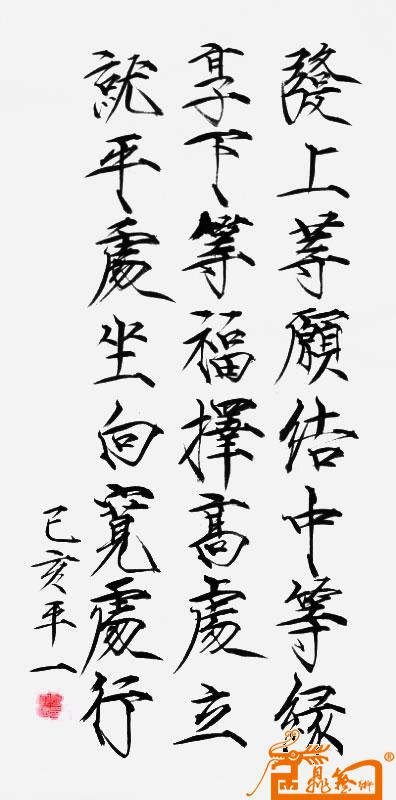 發上等願結中等緣
享下等福擇高處立
就平處坐向寬處行
己亥平一